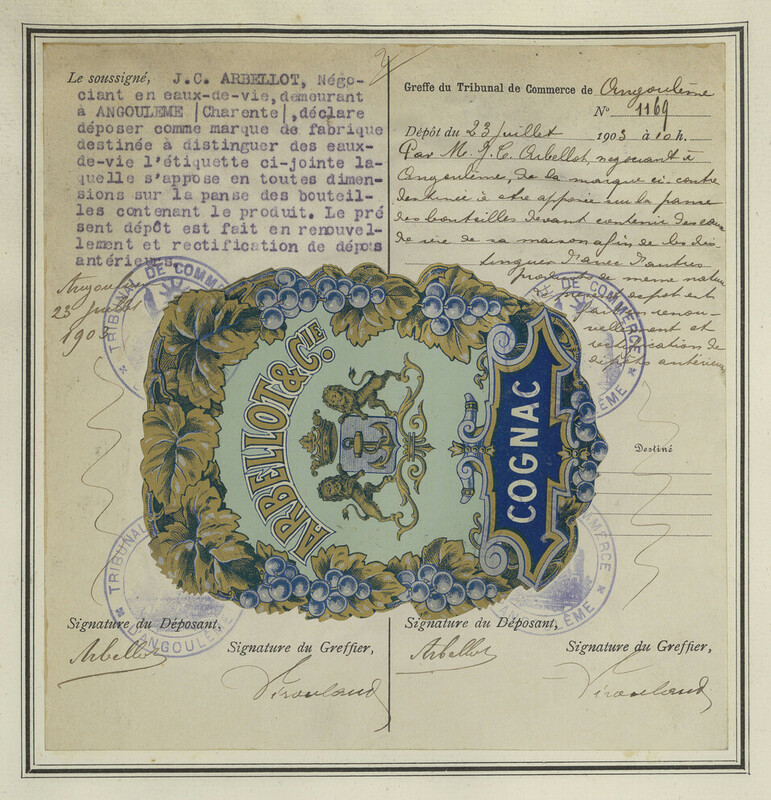 Le soussigné, J.C. ARBELLOT, Négo-
ciant en eaux-de-vie, demeurant
à ANGOULEME (Charente), déclare
déposer comme marque de fabrique
destinée à distinguer des eaux-
de-vie l'étiquette ci-jointe la-
quelle s'appose en toutes dimen-
sions sur la panse des bouteil-
les contenant le produit. Le pré
sent dépôt est fait en renouvel-
lement et rectification de dépôts
antérieurs
Angoulême
23 juillet
1903
Greffe du Tribunal de Commerce de Angoulême
N° 1169
Dépôt du 23 juillet 1903 à 10 h.
Par M. J. C. Arbellot, négociant à
Angoulême, de la marque ci-contre
destinée à être apposée sur la panse
des bouteilles devant contenir des eaux
de vie de sa maison afin de les dis-
tinguer d'avec d'autres
produits de même nature
dépôt est
renou-
vellement et
rectification de
dépôts antérieurs
TRIBUNAL DE COMMERCE
DE COMMERCE
ÈME
ARBELLOT & CIE.
COGNAC
Destiné
TRIBUNAL
D'ANGOULÊME
COMMERCE
ÊME
Signature du Déposant,
Signature du Greffier,
Arbellot
Signature du Déposant,
Signature du Greffier,
Arbellot